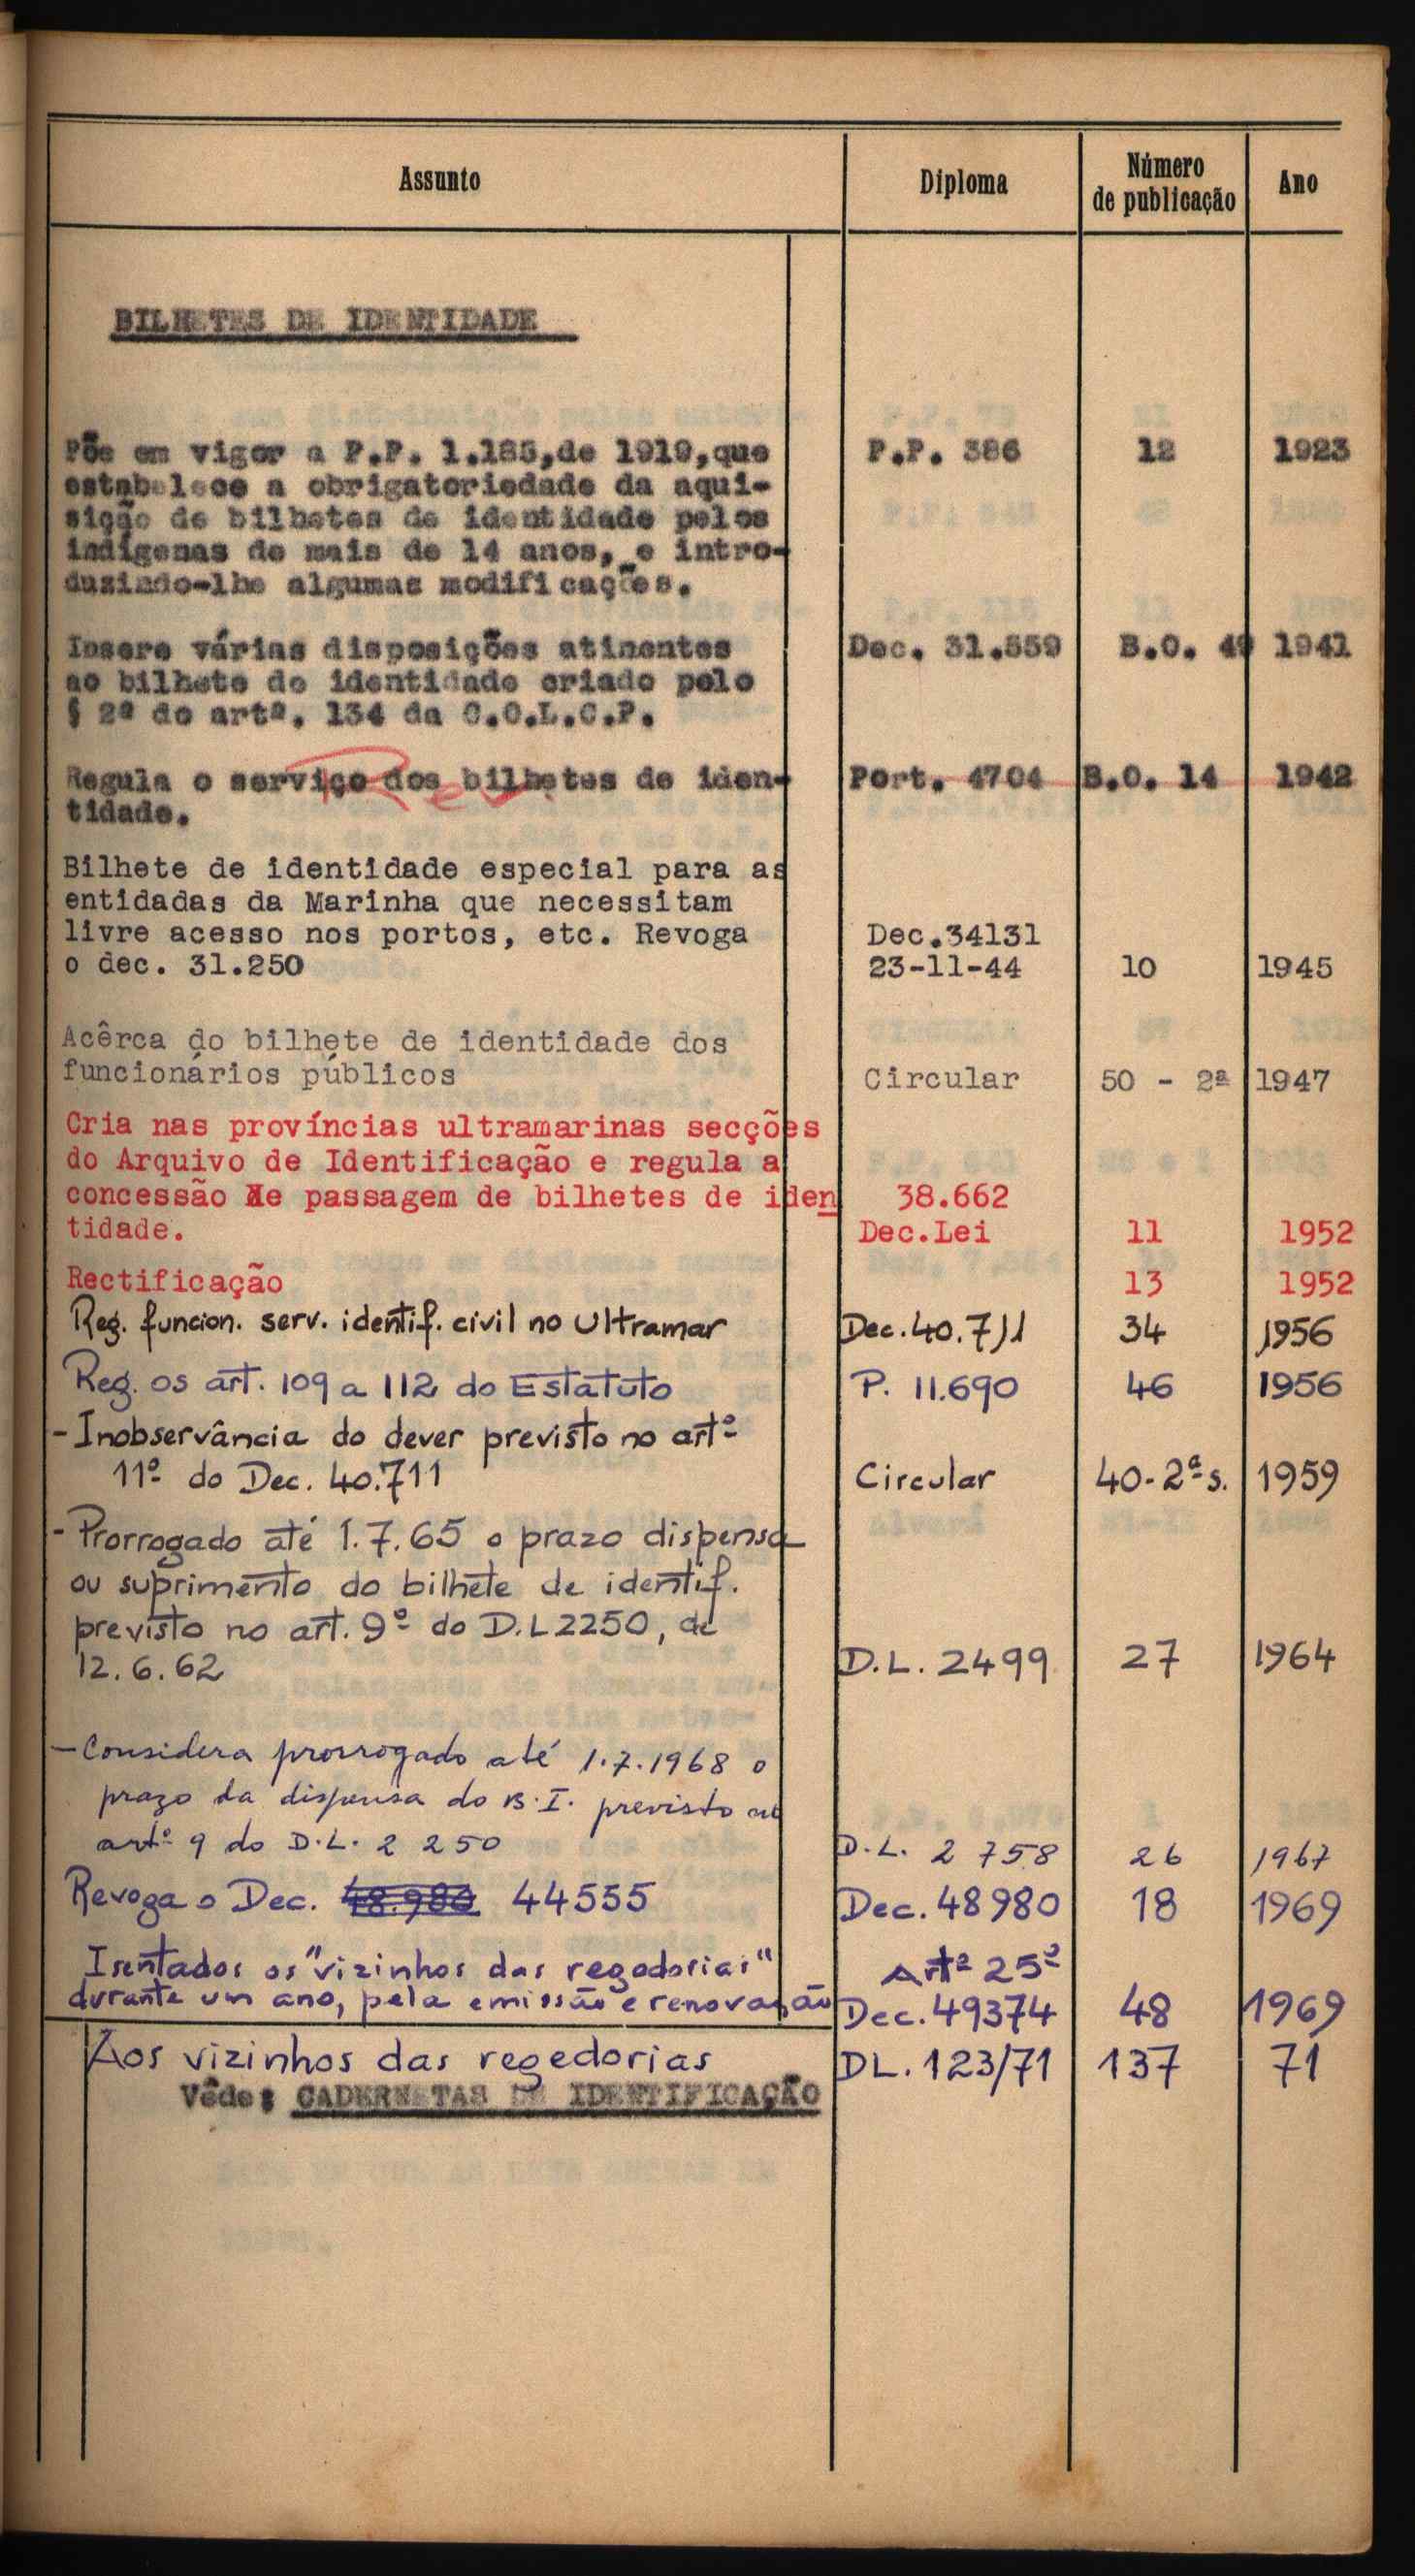 Assunto Diploma Número de publicação Ano
BILHETES DE IDENTIDADE
Põe em vigor a P.P. 1.185,de 1919,que P.P. 386 12 1923
estabelece a obrigatoriedade da aqui-
sição de bilhetes de identidade pelos
indígenas de mais de 14 anos, e intro-
duzindo-lhe algumas modificações.
Insere várias disposições atinentes Dec. 31.559 B.O. 49 1941
ao bilhete de identidade criado pelo
§ 2º do artº. 134 da C.O.L.C.P.
Regula o serviço dos bilhetes de iden- Port. 4704 B.O. 14 1942
Rev
tidade.
Bilhete de identidade especial para as
entidadas da Marinha que necessitam
livre acesso nos portos, etc. Revoga Dec.34131
o dec. 31.250 23-11-44 10 1945
Acêrca do bilhete de identidade dos
funcionários públicos Circular 50 - 2ª 1947
Cria nas províncias ultramarinas secções
do Arquivo de Identificação e regula a
concessão e passagem de bilhetes de iden 38.662
tidade. Dec.Lei 11 1952
Rectificação 13 1952
Reg. funcion. serv. identif. civil no Ultramar Dec. 40.711 34 1956
Reg. os art. 109 a 112 do Estatuto P. 11.690 46 1956
- Inobservância do dever previsto no artº
11º do Dec. 40.711 Circular 40-2ªs. 1959
- Prorrogado até 1.7.65 o prazo dispensa
ou suprimento do bilhete de identif.
previsto no art. 9º do D.L 2250, de
12.6.62 D.L. 2499 27 1964
- Considera prorrogado até 1.7.1968 o
prazo da dispensa do B.I. previsto no
artº 9 do D.L. 2 250 D.L. 2 758 26 1967
Revoga o Dec. 48.980 44555 Dec. 48980 18 1969
Isentados os "vizinhos das regedorias" Artº 25º
durante um ano, pela emissão e renovação Dec. 49374 48 1969
Aos vizinhos das regedorias DL. 123/71 137 71
Vêde: CADERNETAS DE IDENTIFICAÇÃO